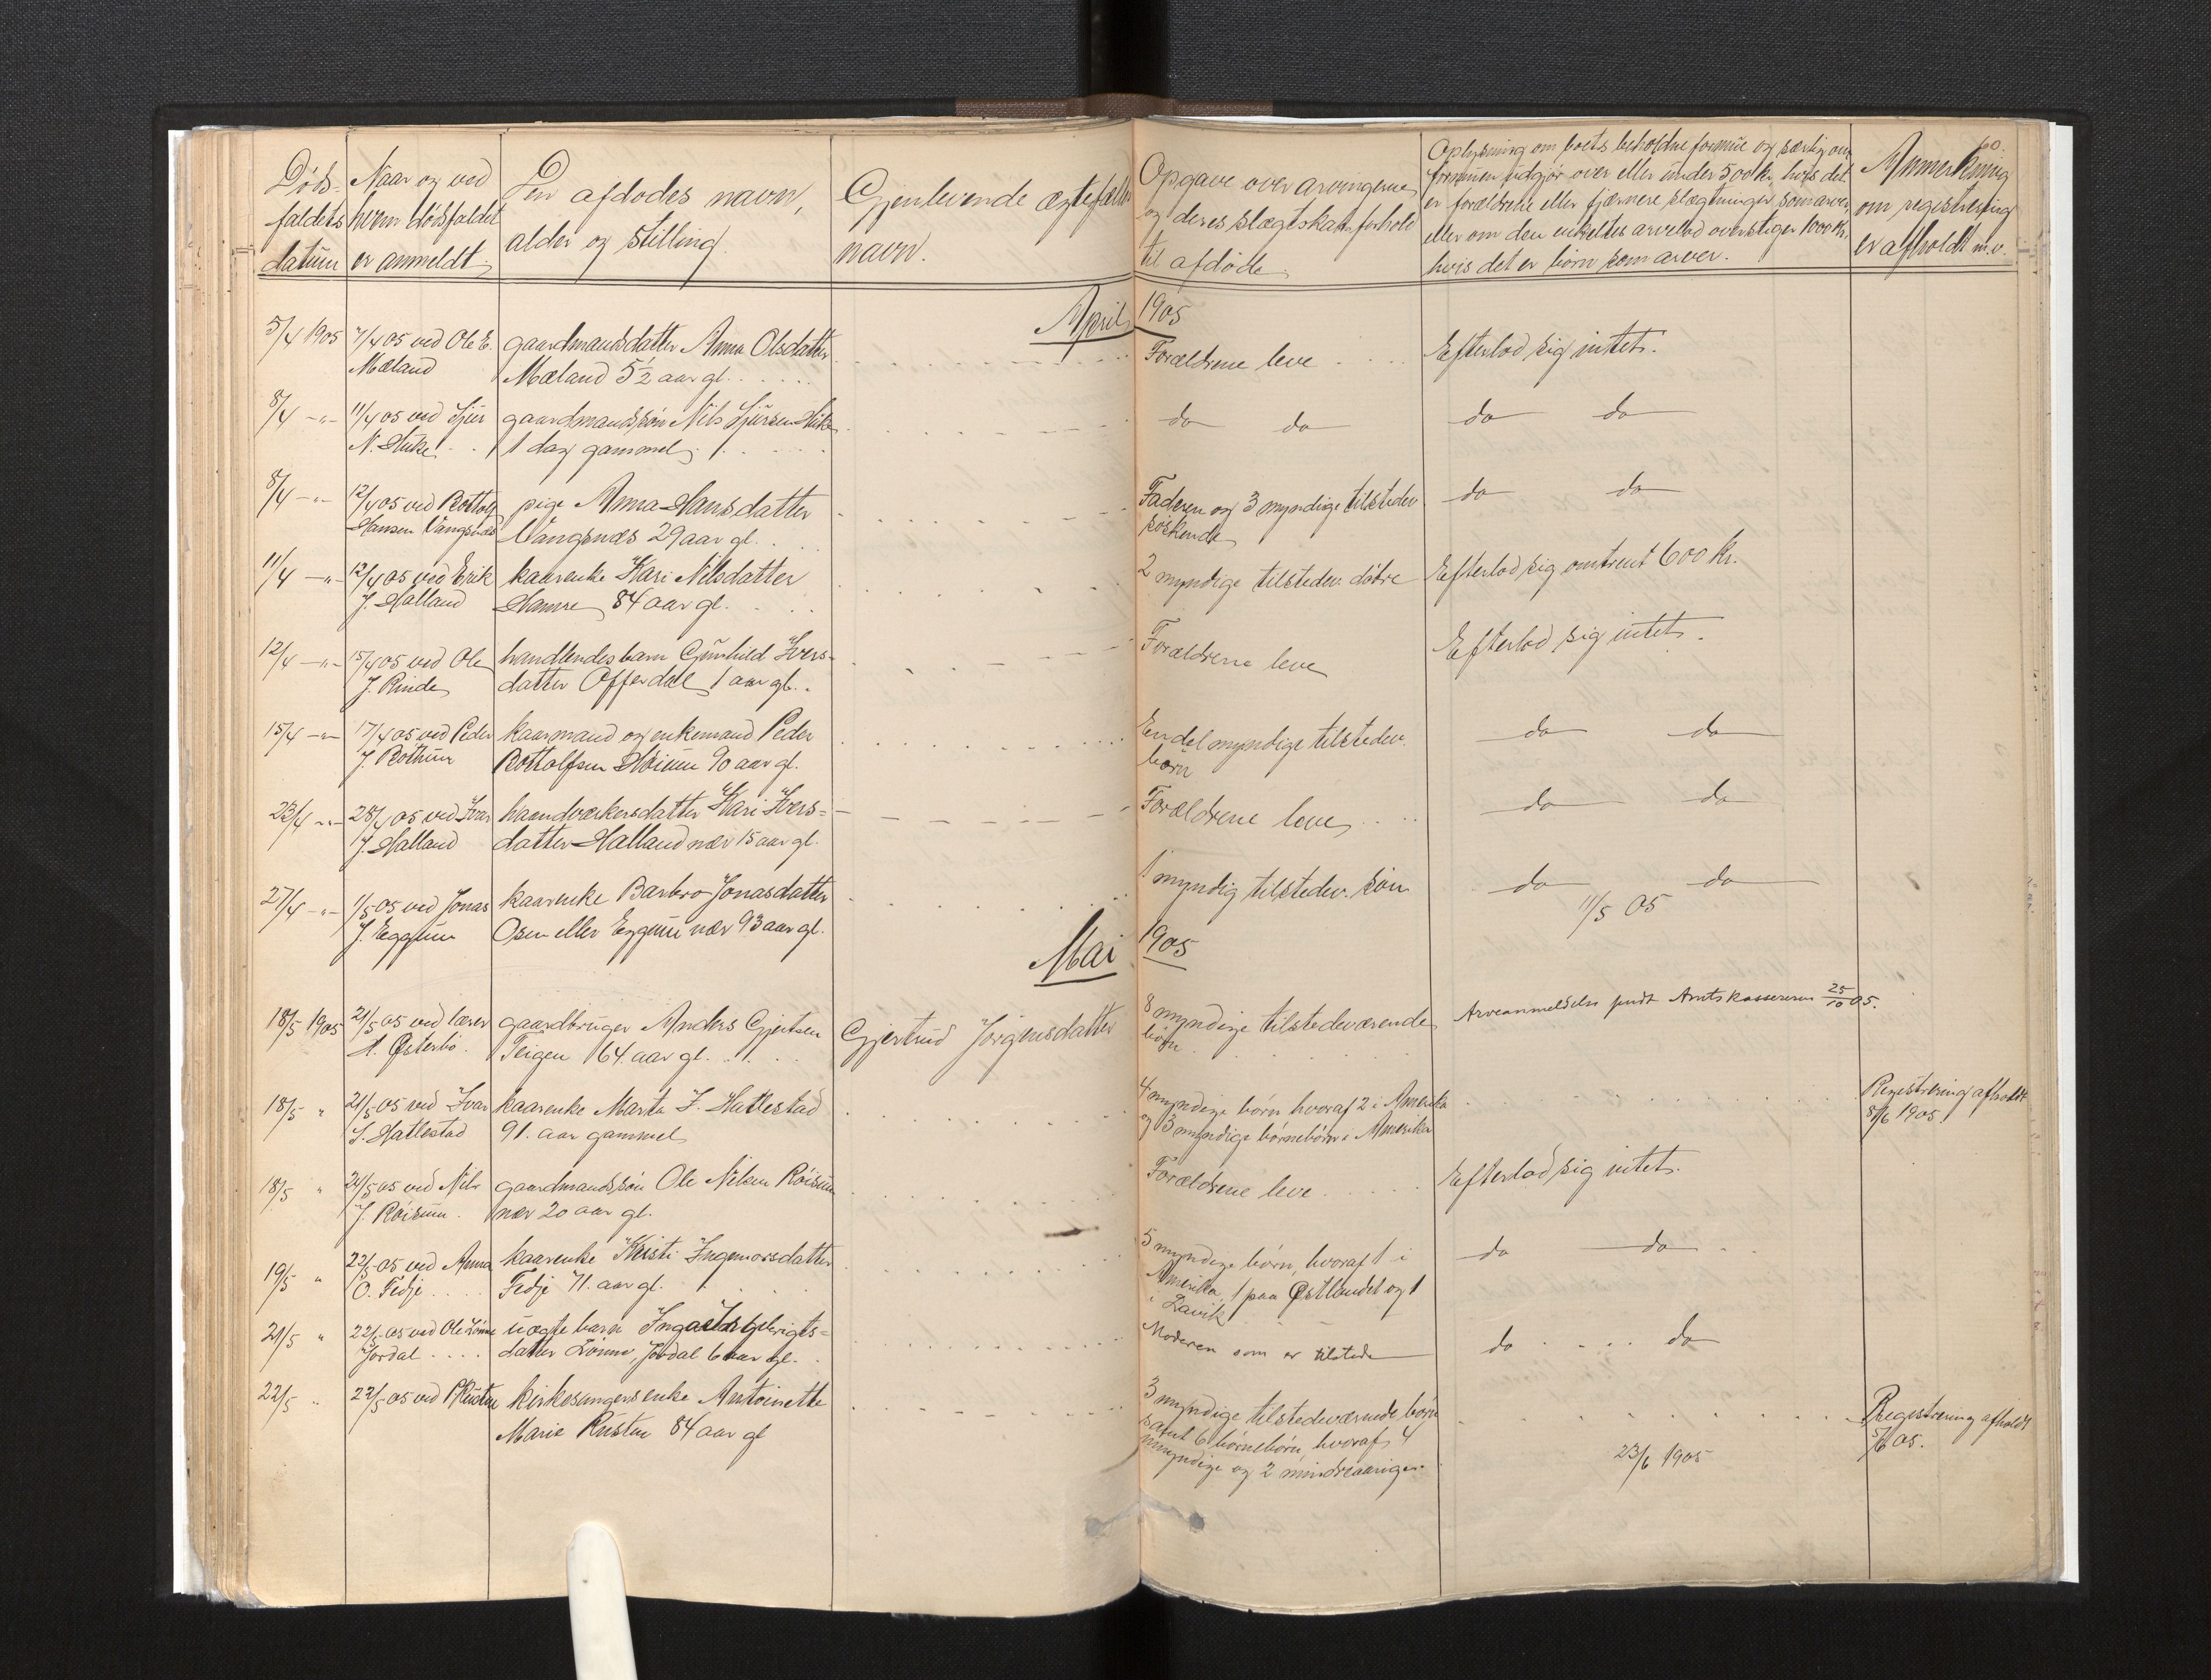 60.
Døds-
faldets
datum
Naar og ved
hvem dødsfaldet
er anmeldt.
Den afdødes navn,
alder og stilling.
Gjenlevende ægtefælles
navn.
Opgave over arvingerne
og deres slægtskabsforhold
til afdøde.
Oplysning om boets beholdne formue og særlig om
formuen udgjør over eller under 500 kr, hvis det
er forældrene eller fjærnere slægtninger som arver,
eller om den enkeltes arvelod overstiger 1000 kr,
hvis det er børn som arver.
Anmerkning
om registrering
er afholdt m.v.
April 1905
5/4 1905 7/4 05 ved Ole E. gaardmandsdatter Anna Olsdatter Forældrene leve Efterlod sig intet.
Mæland Mæland 5 1/2 aar gl.
8/4 -"- 11/4 05 ved Sjur gaardmandssøn Nils Sjursen Huke do do do do
N. Huke 1 dag gammel
8/4 -"- 12/4 05 ved Bottolf pige Anna Hansdatter Faderen og 3 myndige tilstedev. do do
Hansen Vangsnes Vangsnæs 29 aar gl. søskende
11/4 -"- 12/4 05 ved Erik kaarenke Kari Nilsdatter 2 myndige tilstedev. døtre Efterlod sig omtrent 600 kr.
J. Halland Hamre 84 aar gl.
12/4 -"- 15/4 05 ved Ole handlendes barn Gunhild Ivers- Forældrene leve Efterlod sig intet.
J. Rinde datter Offerdal 1 aar gl.
15/4 -"- 17/4 05 ved Peder kaarmand og enkemand Peder En del myndige tilstedev. do do
J. Bøthun Bottolfsen Hoium 90 aar gl. børn
23/4 -"- 28/4 05 ved Ivar haandværkersdatter Kari Ivers- Forældrene leve do do
J. Halland datter Halland nær 15 aar gl.
27/4 -"- 1/5 05 ved Jonas kaarenke Barbro Jonasdatter 1 myndig tilstedev. søn do do
J. Eggum Osen eller Eggum nær 93 aar gl. 11/5 05
Mai 1905
18/5 1905 21/5 05 ved lærer gaardbruger Anders Gjertsen Gjertrud Jørgensdatter 8 myndige tilstedeværende Arveanmeldelse sendt Amtskassereren 25/10 05.
A. Østerbø. Teigen 64. aar gl. børn
18/5 " 21/5 05 ved Ivar kaarenke Marta I. Hatlestad 4 myndige børn hvoraf 2 i Amerika Registrering afholdt
S. Hatlestad 91. aar gammel og 3 myndige børnebørn i Amerika 8/6 1905.
18/5 " 21/5 05 ved Nils gaardmandssøn Ole Nilsen Røisum Forældrene leve Efterlod sig intet.
J. Røisum. nær 20 aar gl.
19/5 " 22/5 05 ved Anna kaarenke Kristi Ingemorsdatter 5 myndige børn, hvoraf 1 i do do
O. Fedje Fedje 71. aar gl. Amerika, 1 paa Østlandet og 1
i Lavik
21/5 " 22/5 05 ved Ole Lønne uægte barn Inga Moderen som er tilstede do do
Jordal datter Lønne, Jordal 6 aar gl.
22/5 " 22/5 05 ved P Rusten kirkesangersenke Antoinette 3 myndige tilstedeværende børn Registrering afholdt
Marie Rusten 84 aar gl samt 6 børnebørn, hvoraf 4 5/6 05.
myndige og 2 mindreaarige. 23/6 1905